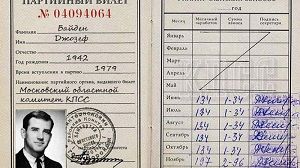 ПАРТИЙНЫЙ БИЛЕТ
№ 04094064
Фамилия Байден
Имя Джозеф
Отчество
Год рождения 1942
Время вступления в партию 1979
Наименование партийного органа, выдавшего билет
Московский областной
комитет КПСС
год
Месяц Месячный заработок Взнос Подпись секретаря
Январь
Февраль
Март
Апрель
Май
Июнь 134 1-34
Июль 134 1-34
Август 134 1-34
Сентябрь 134 1-34
Октябрь 134 1-34
Ноябрь